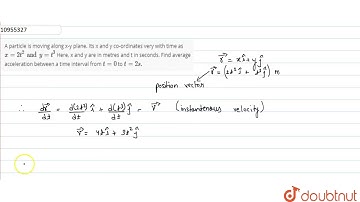 10955327
A particle is moving along x-y plane. Its x and y co-ordinates very with time as
x = 2t² and y = t³ Here, x and y are in metres and t in seconds. Find average
acceleration between a time interval from t = 0 to t = 2s.
r⃗ = xî + yĵ
r⃗ = (2t² î + t³ ĵ) m
position vector
∴ dr⃗/dt = d(2t²)/dt î + d(t³)/dt ĵ = v⃗ (instantenous velocity)
v⃗ = 4t î + 3t² ĵ
doubtnut